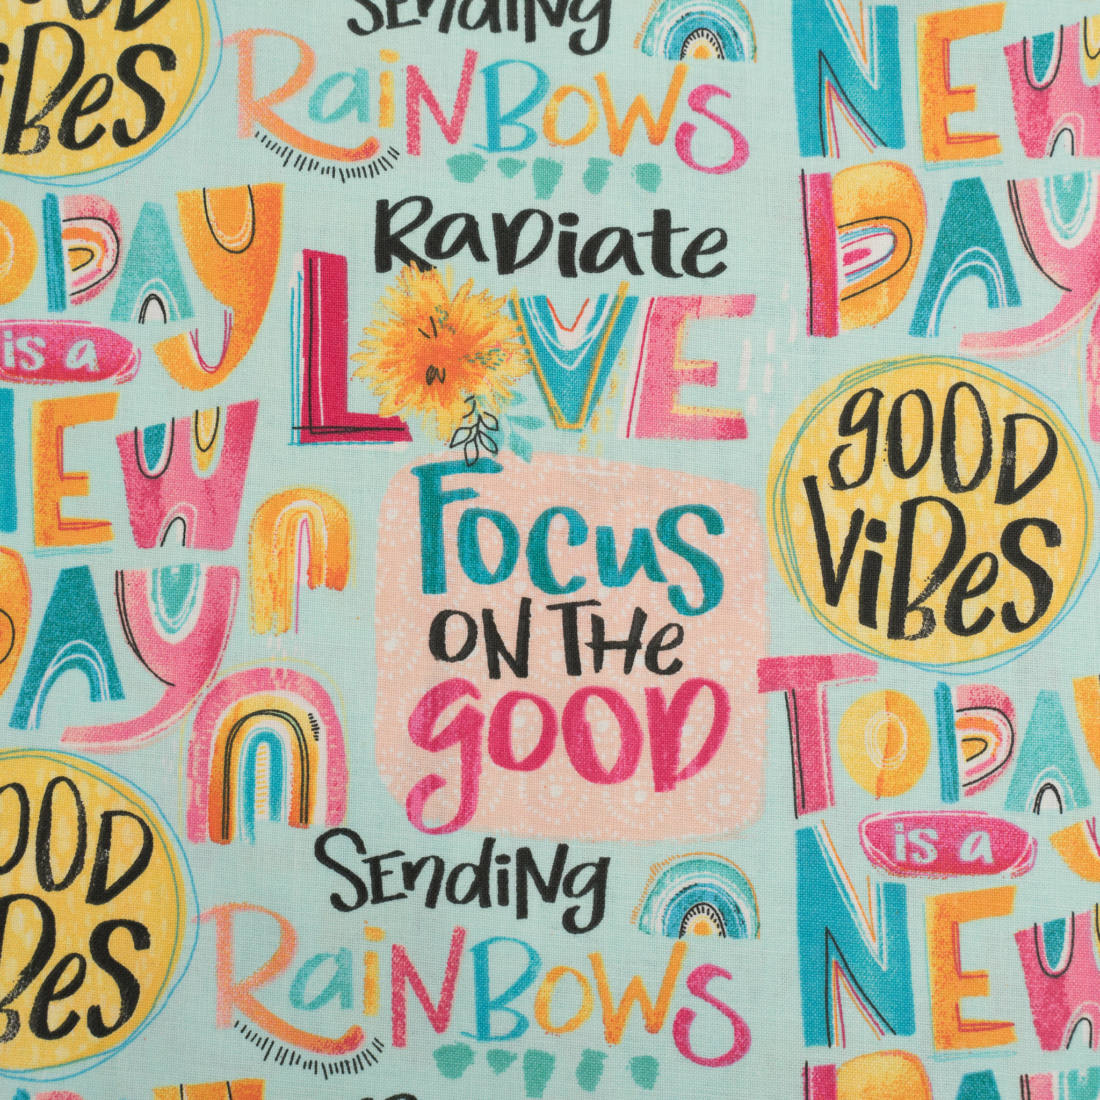 Sending
RaiNBOWS
Radiate
LOVE
Focus
ON THe
gOOD
Sending
RaiNBOWS
ViBes
TODAY
is a
NEW
DAY
NEW
DAY
gOOD
ViBes
TODAY
is a
NEW
DAY
OOD
Bes